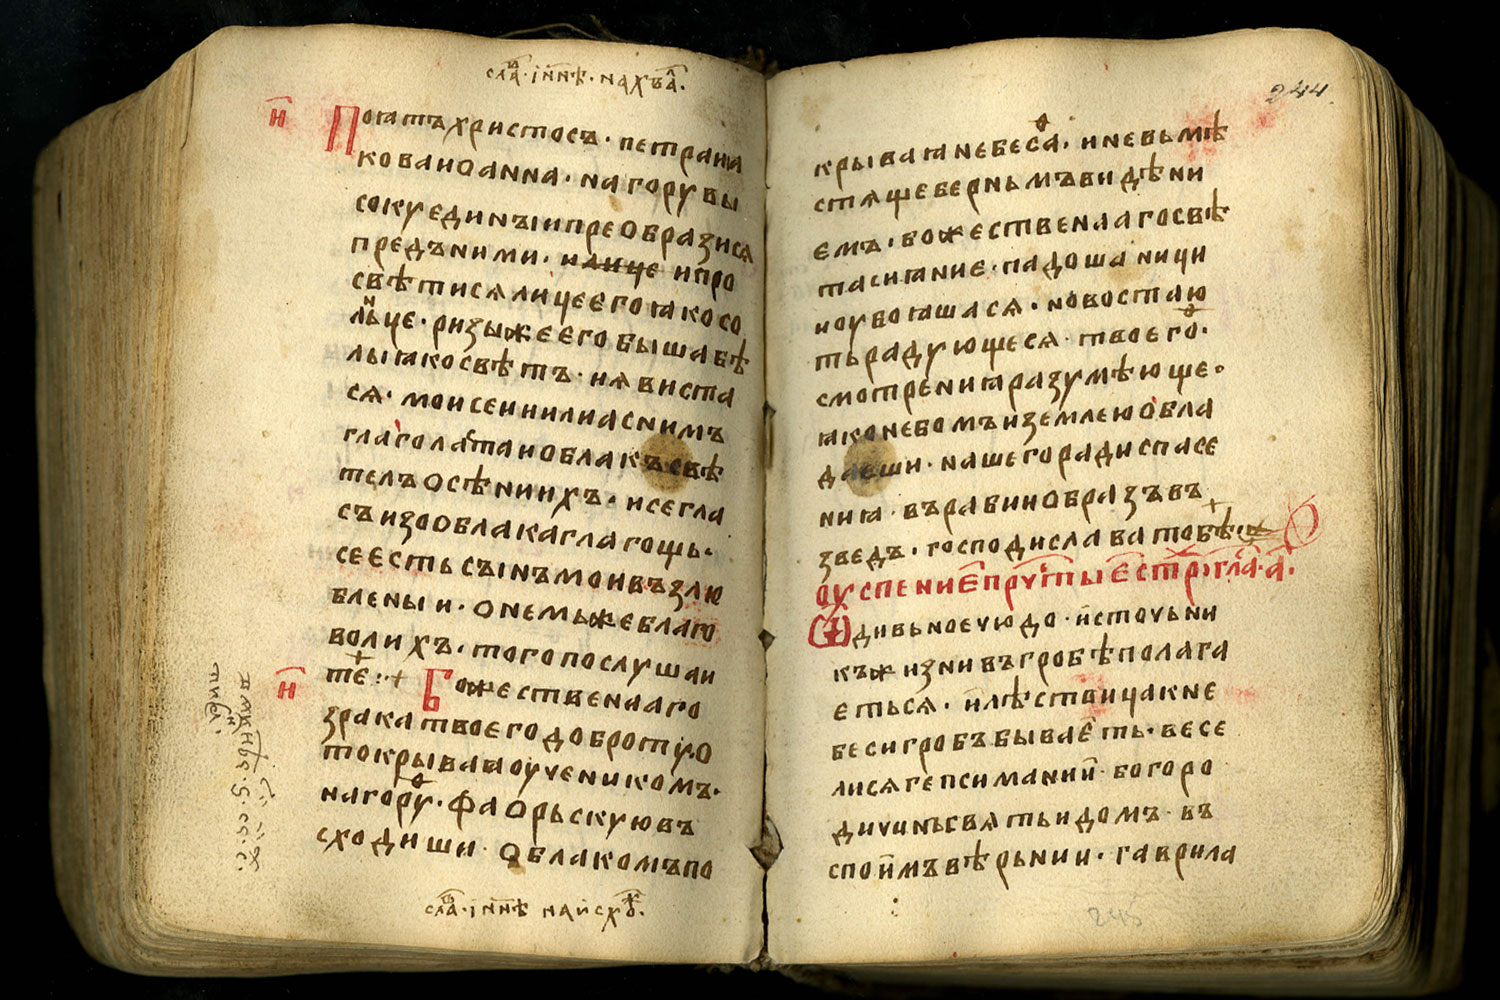 сла · іннѣ · на хва
н
Поꙗтъ христосъ · петра ниꙗ
кова иоанна · на гору вы
соку единъı и преобразися
предъ ними · и лице и про
свѣтися лице его ꙗко со
лньце · ризы же его быша бѣ
лы ꙗко свѣтъ · и явиста
ся · моисеи и илиа с нимъ
глагола та и облакъ свѣ
телъ осѣни ихъ · и се гла
съ изо облака глагощь ·
се есть сынъ мои възлю
блены и · о немъже благо
волихъ · того послушаи
те : +
н
Божественааго
зрака твоего доброту о
токрываꙗ оученикомъ ·
на гору · фаорьскую въ
сходиши · облакомъ по
сла · іннѣ на исхо ·
244
крываꙗ небеса · и невьмѣ
стяще вернымъ видѣни
емъ · божественааго свѣ
та сиꙗние · падоша ници
и оувоꙗшася · ново стаю
ть радующеся · твоего ·
смотрениꙗ разумѣюще ·
ꙗко небомъ и землею обла
даеши · нашего ради спасе
ниꙗ · въ рабии образъ въ
зведъ · господи слава тобѣ
оуспение прчтыє стрꙑ гла · а ·
Ѡ дивьное чюдо · источьни
къ жизни въ гробѣ полага
еться · и лѣствица к не
беси гробъ бываеть · весе
лися гепсимании · богоро
дичинъ святыи домъ · въ
споимъ вѣрьнии · гаврила
245